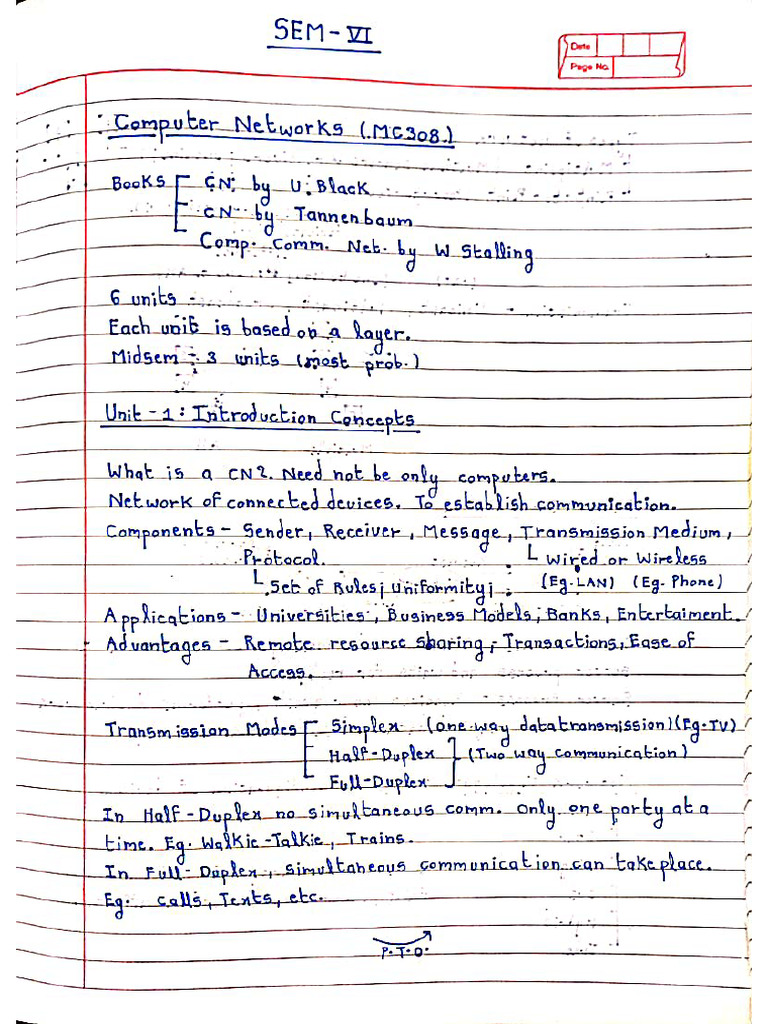 SEM-VI
Date
Page No.
Computer Networks (MC308)
Books CN by U. Black
CN by Tannenbaum
Comp. Comm. Net. by W Stalling
6 units
Each unit is based on a layer.
Midsem - 3 units (most prob.)
Unit-1: Introduction Concepts
What is a CN? Need not be only computers.
Network of connected devices. To establish communication.
Components - Sender, Receiver, Message, Transmission Medium,
Protocol. Wired or Wireless
Set of Rules; Uniformity; (Eg. LAN) (Eg. Phone)
Applications - Universities, Business Models, Banks, Entertaiment.
Advantages - Remote resource sharing, Transactions, Ease of
Access.
Transmission Modes Simplex (one way data transmission) (Eg. TV)
Half-Duplex (Two way communication)
Full-Duplex
In Half-Duplex no simultaneous comm. Only one party at a
time. Eg. Walkie-Talkie, Trains.
In Full-Duplex, simultaneous communication can take place.
Eg. Calls, Texts, etc.
P.T.O.